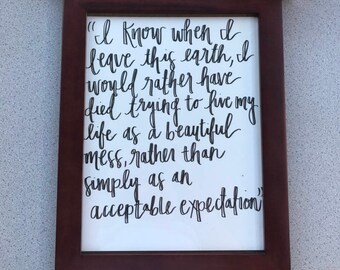 "I know when I
leave this earth, I
would rather have
died trying to live my
life as a beautiful
mess, rather than
simply as an
acceptable expectation"